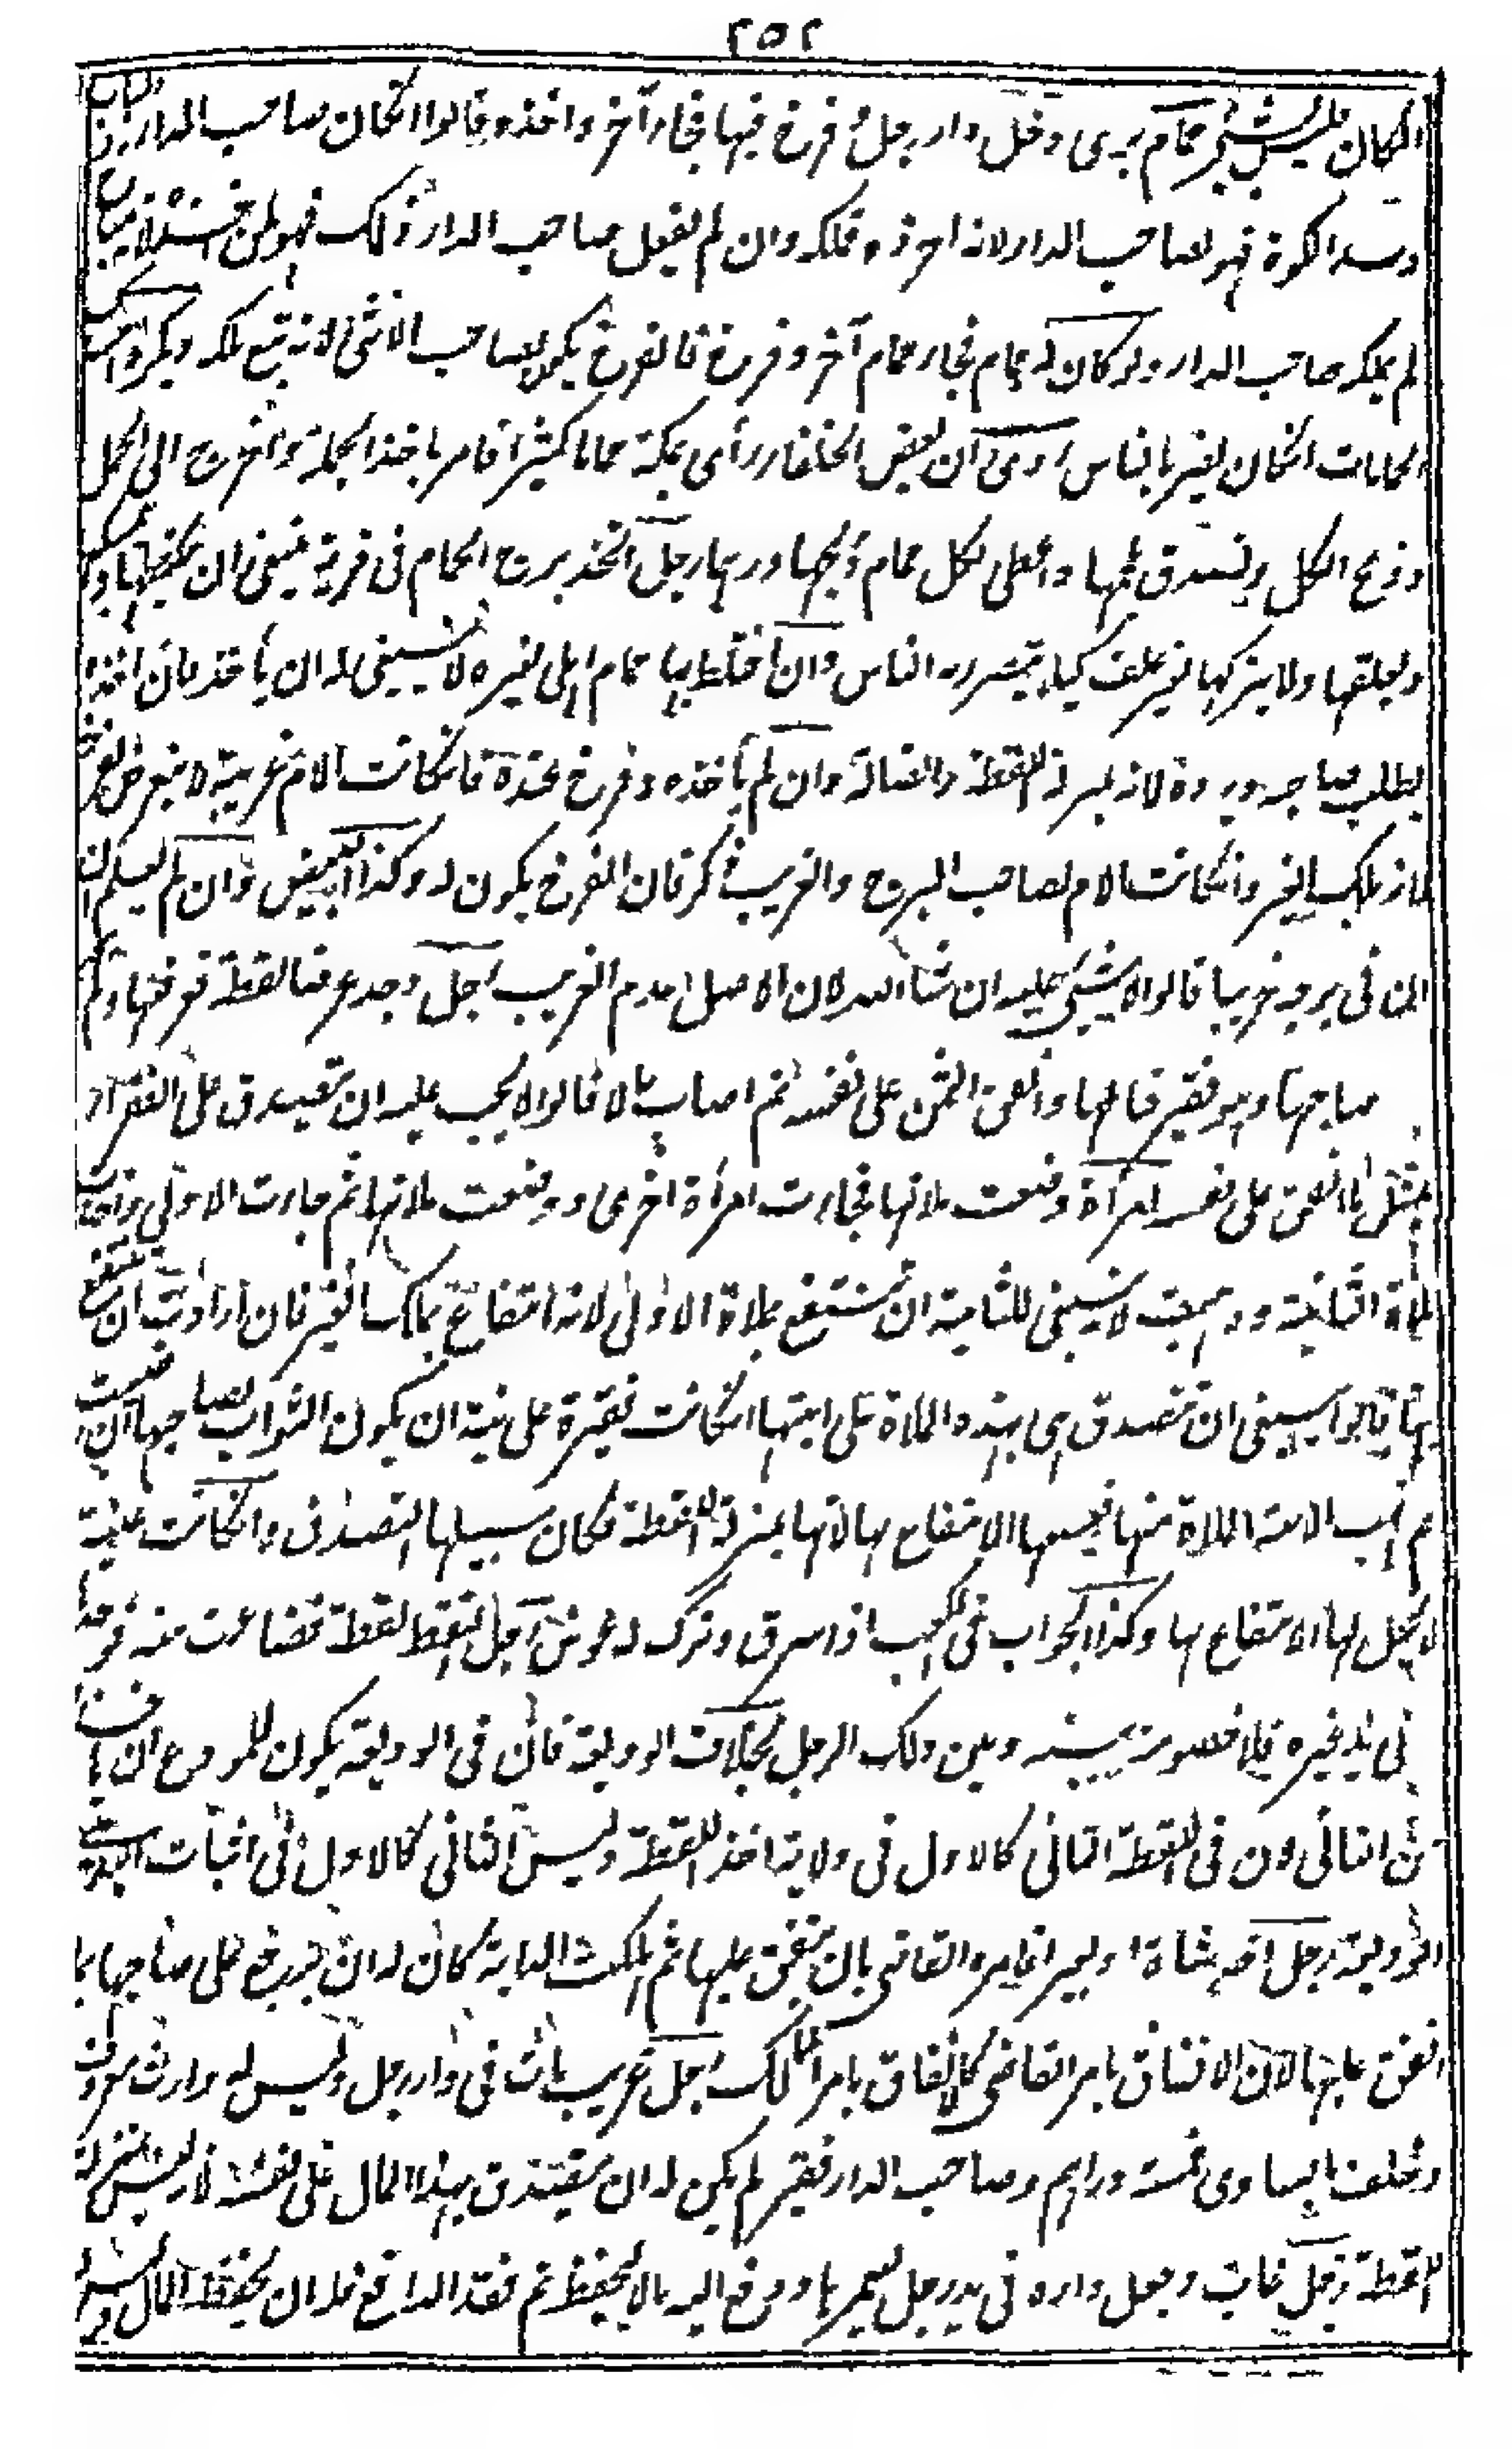 ٢٥٢
المكان فليس بشيء حمام بري دخل دار رجل وفرخ فيها فجاء آخر واخذه قالوا انكان صاحب الدار رد الباب
وسد الكوة فهو لصاحب الدار لانه احرزه وملكه وان لم يفعل صاحب الدار ذلك فهو لمن اخذه لانه
لم يملكه صاحب الدار ولو كان له حمام فجاء حمام آخر وفرخ فالفرخ يكون لصاحب الانثى لانه تبع ملكه ويكره امساك
الحمامات انكان يضر بالناس روي ان بعض الخلفاء رأى بمكة حماما كثيرا فامر باخذ الجملة واخرج الى الحل
وذبح الكل وتصدق بلحمها واعطى لكل حمام درهما رجل اتخذ برج الحمام في قرية ينبغي ان يحفظها
ويعلفها ولا يتركها بغير علف كيلا يتضرر به الناس وان اختلط بها حمام اهلي لغيره لا ينبغي له ان يأخذ فان اخذه
يطلب صاحبه ويرده لانه بمنزلة اللقطة والضالة وان لم يأخذه وفرخ عنده فانكانت الام غريبة لا يتعرض لفرخها
لانه ملك الغير وانكانت الام لصاحب البرج والغريب ذكر فان الفرخ يكون له وكذا البيض وان لم يعلم ان
في برجه غريبا قالوا لا شيء عليه ان شاء الله لان الاصل عدم الغريب رجل وجد عرضا لقطة فعرفها ولم
صاحبها وهو فقير فباعها وانفق الثمن على نفسه ثم اصاب مالا قالوا لا يجب عليه ان يتصدق على الفقراء
بمثل ما انفق على نفسه امرأة وضعت ملاتها فجاءت امرأة اخرى ووضعت ملاتها ثم جاءت الاولى واخذت
ملاة الثانية وذهبت لا ينبغي للثانية ان تنتفع بملاة الاولى لانه انتفاع بملك الغير فان ارادت ان تنتفع
بها قالوا ينبغي ان تتصدق هي بهذه الملاة على ابنتها انكانت فقيرة على نية ان يكون الثواب لصاحبها ان رضيت
ثم تهب الابنة الملاة منها فيسعها الانتفاع بها لانها بمنزلة اللقطة فكان سبيلها التصدق وانكانت غنية
لا يحل لها الانتفاع بها وكذا الجواب في المكعب اذا سرق وترك له عوض رجل التقط لقطة فضاعت منه فوجدها
في يد غيره فلا خصومة بينه وبين ذلك الرجل بخلاف الوديعة فان في الوديعة يكون للمودع ان يأخذها
من الثاني لان في اللقطة الثاني كالاول في ولاية اخذ اللقطة وليس الثاني كالاول في اثبات اليد على
الوديعة رجل اخذ شاة او بعيرا فامره القاضي بان ينفق عليها ثم هلكت الدابة كان له ان يرجع على صاحبها بما
انفق عليها لان الانفاق بامر القاضي كالانفاق بامر المالك رجل غريب مات في دار رجل وليس له وارث معروف
وخلف ما يساوي خمسة دراهم وصاحب الدار فقير لم يكن له ان يتصدق بهذا المال على نفسه لانه ليس بمنزلة
اللقطة رجل غاب وجعل داره في يد رجل ليعمرها ودفع اليه مالا ليحفظ ثم فقد الدافع فله ان يحفظ المال